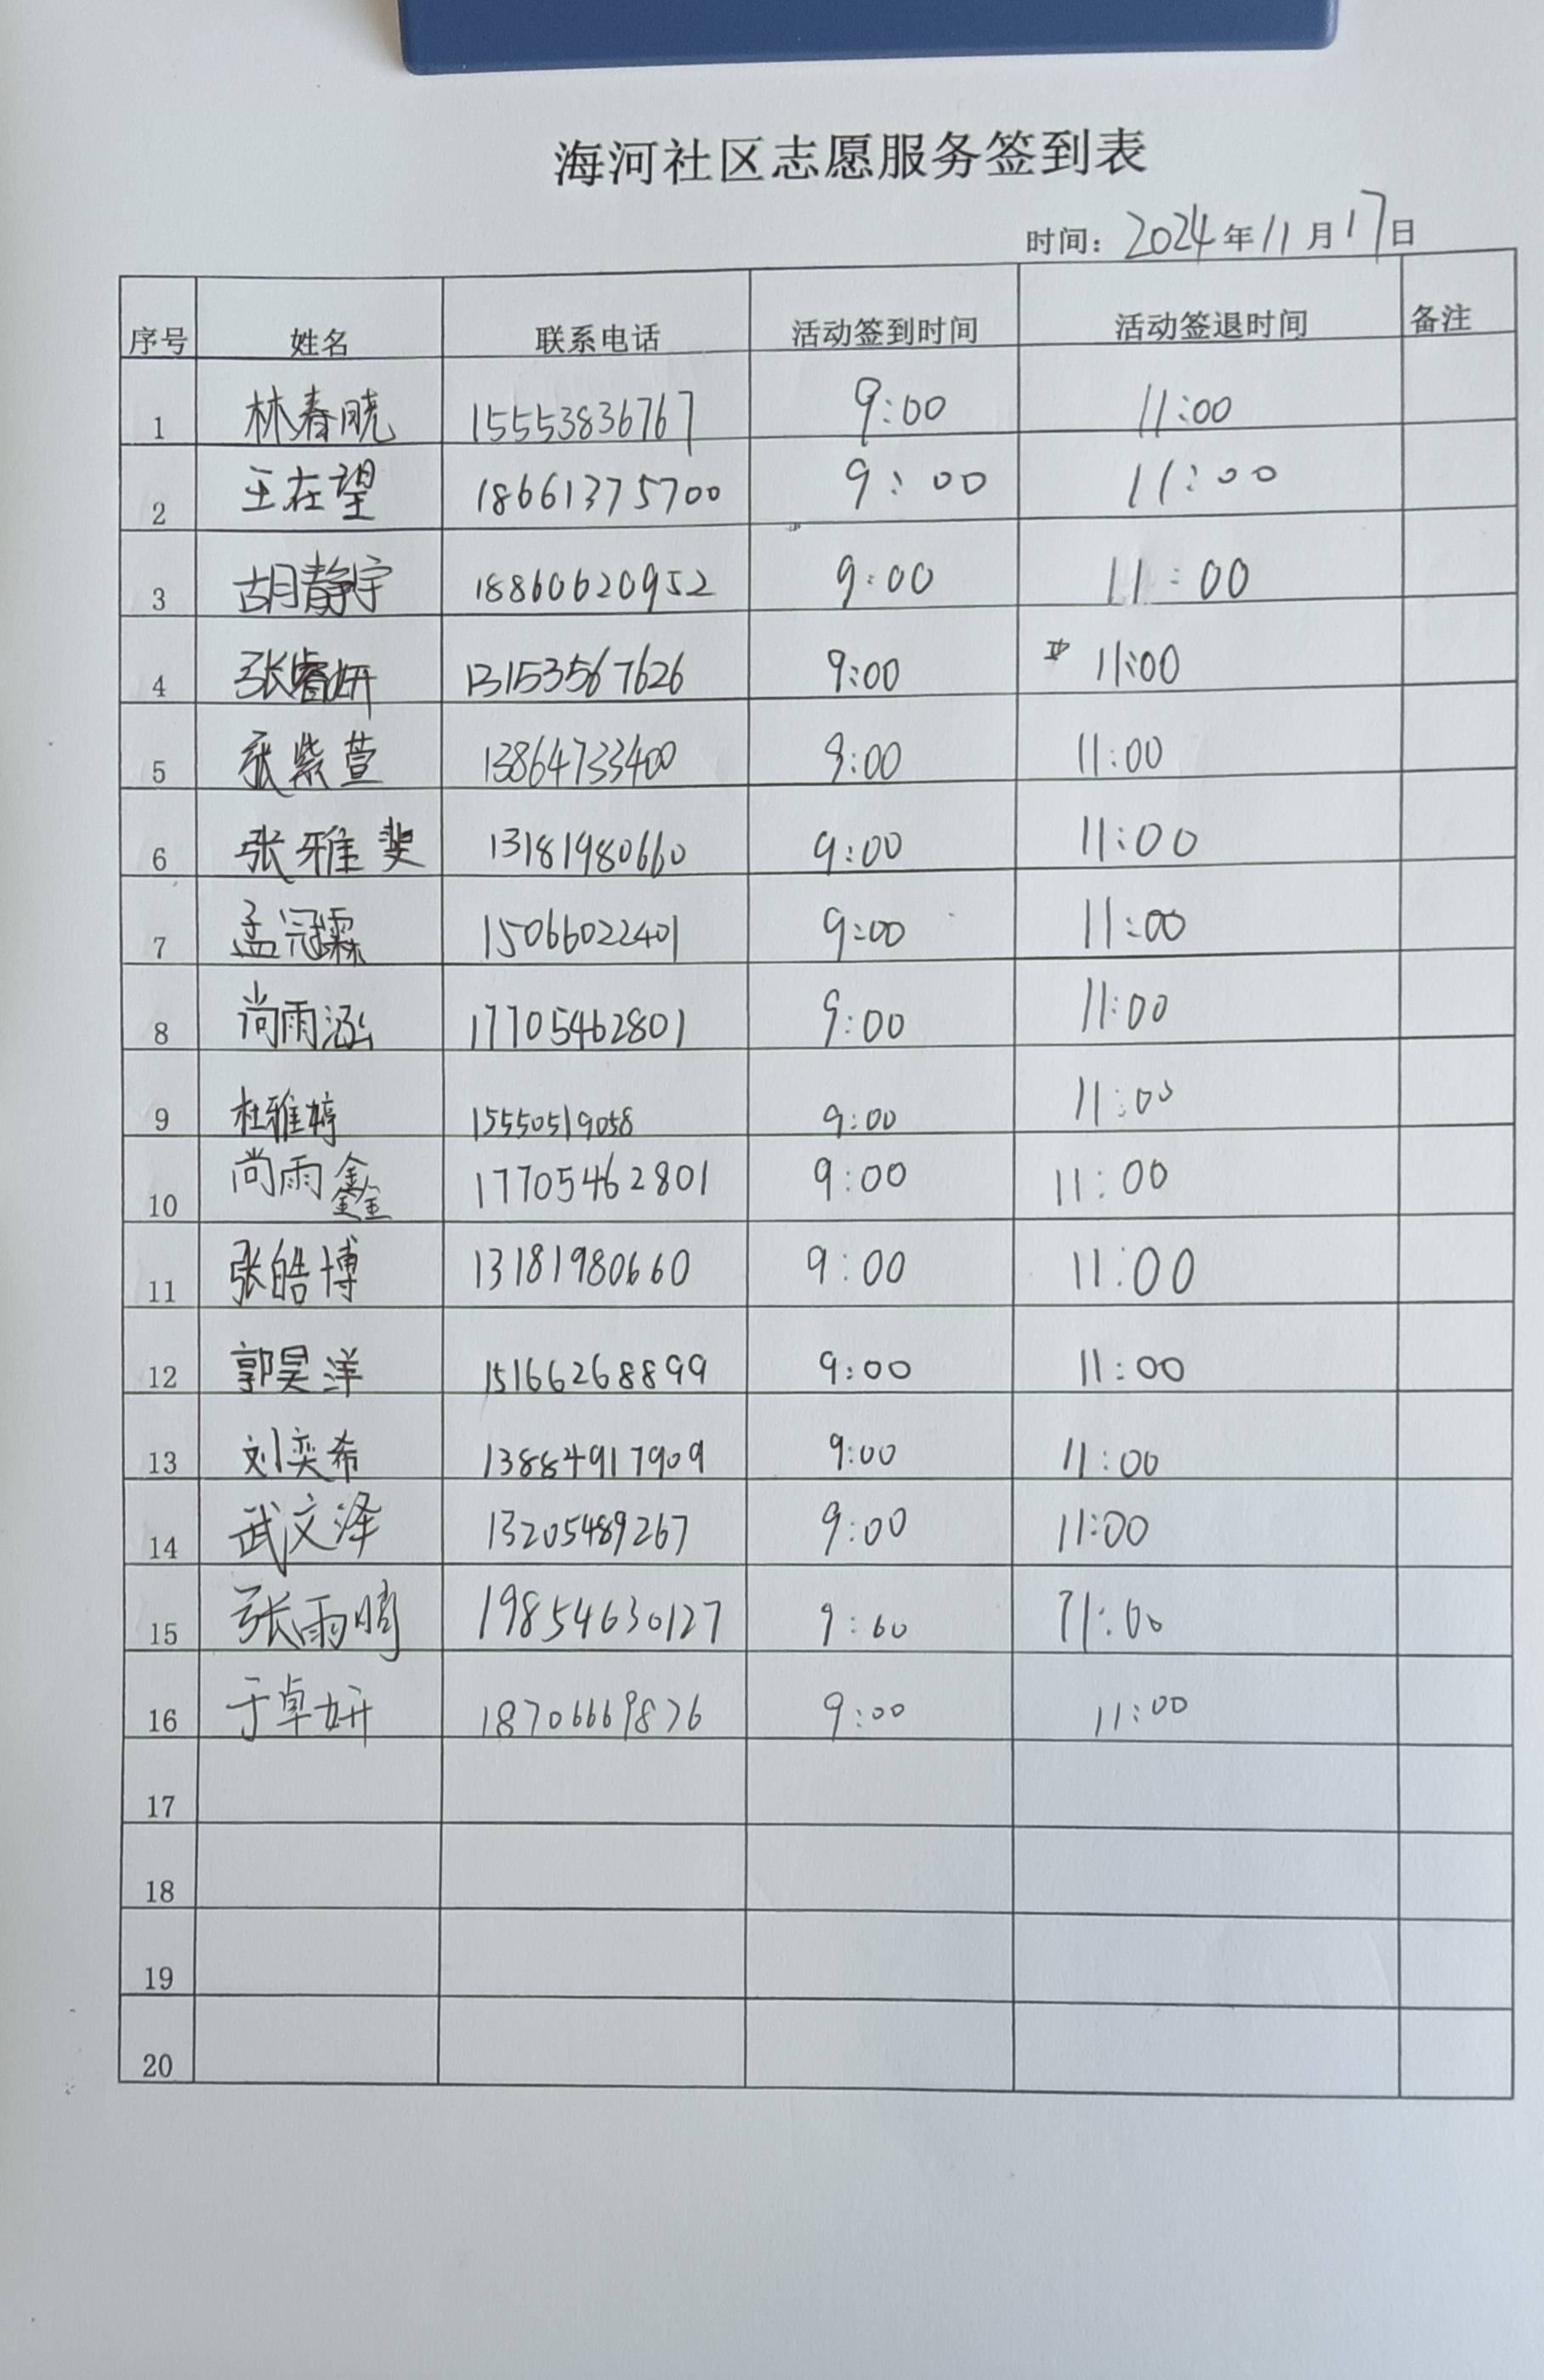 海河社区志愿服务签到表
时间：2024年11月17日
序号 姓名 联系电话 活动签到时间 活动签退时间 备注
1 林春晓 15553836767 9:00 11:00
2 王在望 18661375700 9:00 11:00
3 胡静宇 18860620952 9:00 11:00
4 张睿妍 13153567626 9:00 11:00
5 张紫萱 13864733400 9:00 11:00
6 张雅斐 13181980660 9:00 11:00
7 孟冠霖 15066022401 9:00 11:00
8 尚雨涵 17705462801 9:00 11:00
9 杜雅婷 15550519058 9:00 11:00
10 尚雨鑫 17705462801 9:00 11:00
11 张皓博 13181980660 9:00 11:00
12 郭昊洋 15166268899 9:00 11:00
13 刘奕希 13884917909 9:00 11:00
14 武文泽 13205489267 9:00 11:00
15 张雨 19854630127 9:00 11:00
16 于卓妍 18706669876 9:00 11:00
17
18
19
20